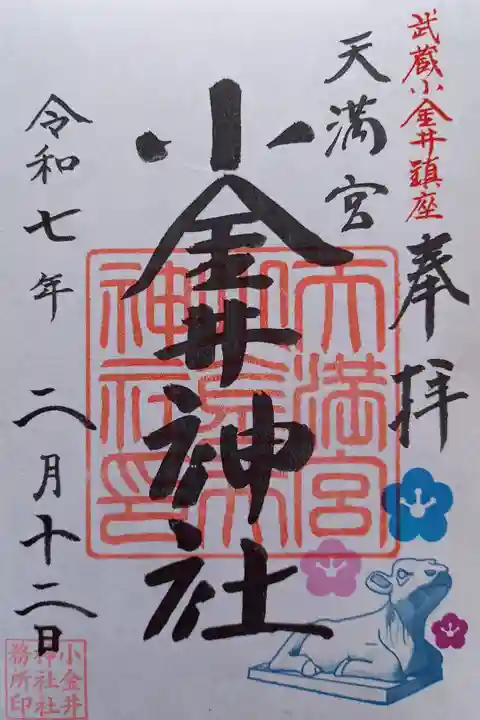 武蔵小金井鎮座
奉拝
天満宮
小金井神社
令和七年 二月十二日
天満宮
神社印
小金井
神社社
務所印